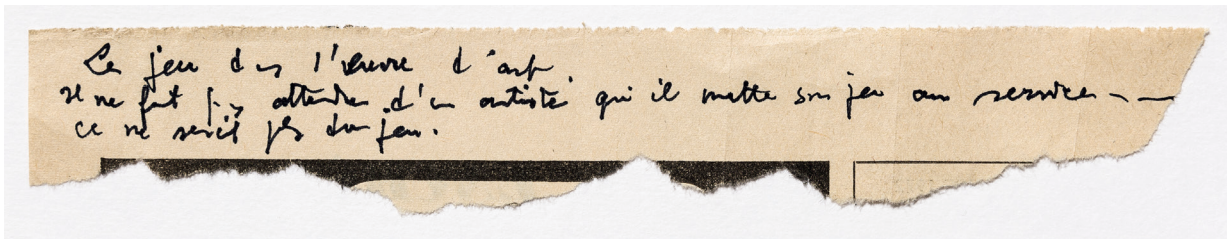 Le jeu dans l'œuvre d'art
Il ne faut pas attendre d'un artiste qu'il mette son jeu au service - —
ce ne serait pas du jeu.